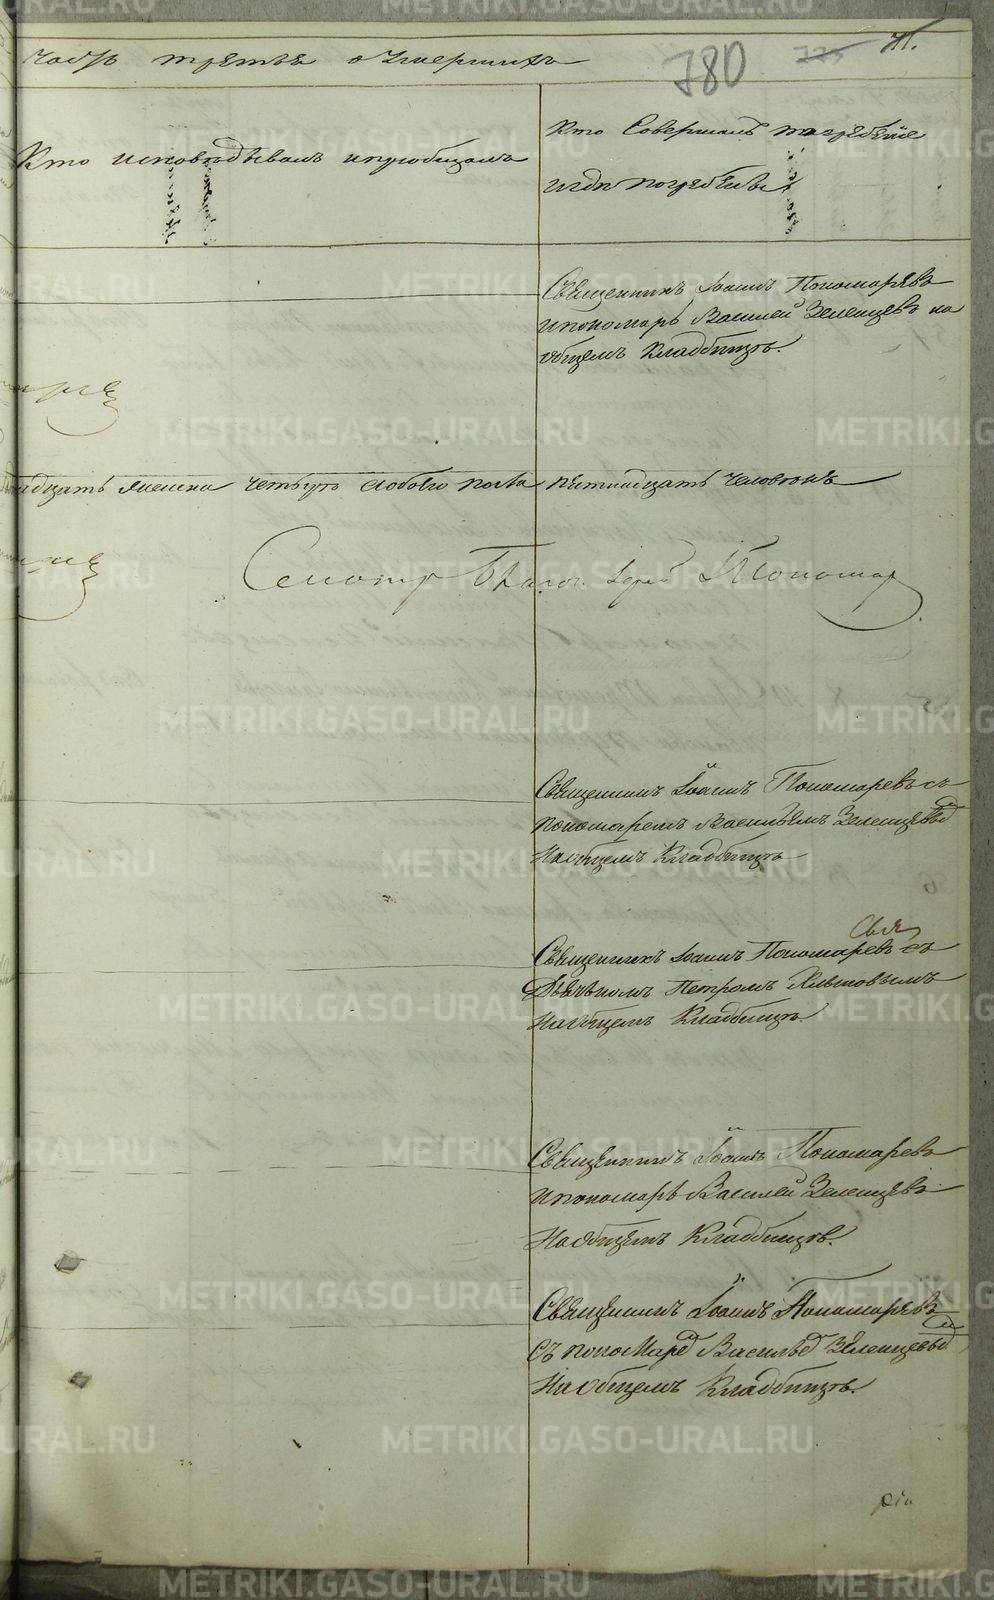 Часть третья о Умершихъ
780
Кто исповѣдывалъ и пріобщалъ
Кто Совершалъ погребенiе
и гдѣ погребены
Священникъ Iоаннъ Пономаревъ
и пономарь Василей Зеленцевъ на
общемъ Кладбищѣ.
женска четырть обоего пола пятнадцать человѣкъ
Священникъ Iоаннъ Пономаревъ съ
пономаремъ Васильемъ Зеленцевым
На общемъ Кладбищѣ
Священникъ Iоаннъ Пономаревъ съ
Дьячькомъ Петромъ
На общемъ Кладбищѣ.
Священникъ Iоаннъ Пономаревъ
и пономарь Василей Зеленцевъ
На общемъ Кладбищѣ.
Священникъ Iоаннъ Пономаревъ
Съ пономарем Васильем Зеленцевым
На общемъ Кладбищѣ.
METRIKI.GASO-URAL.RU